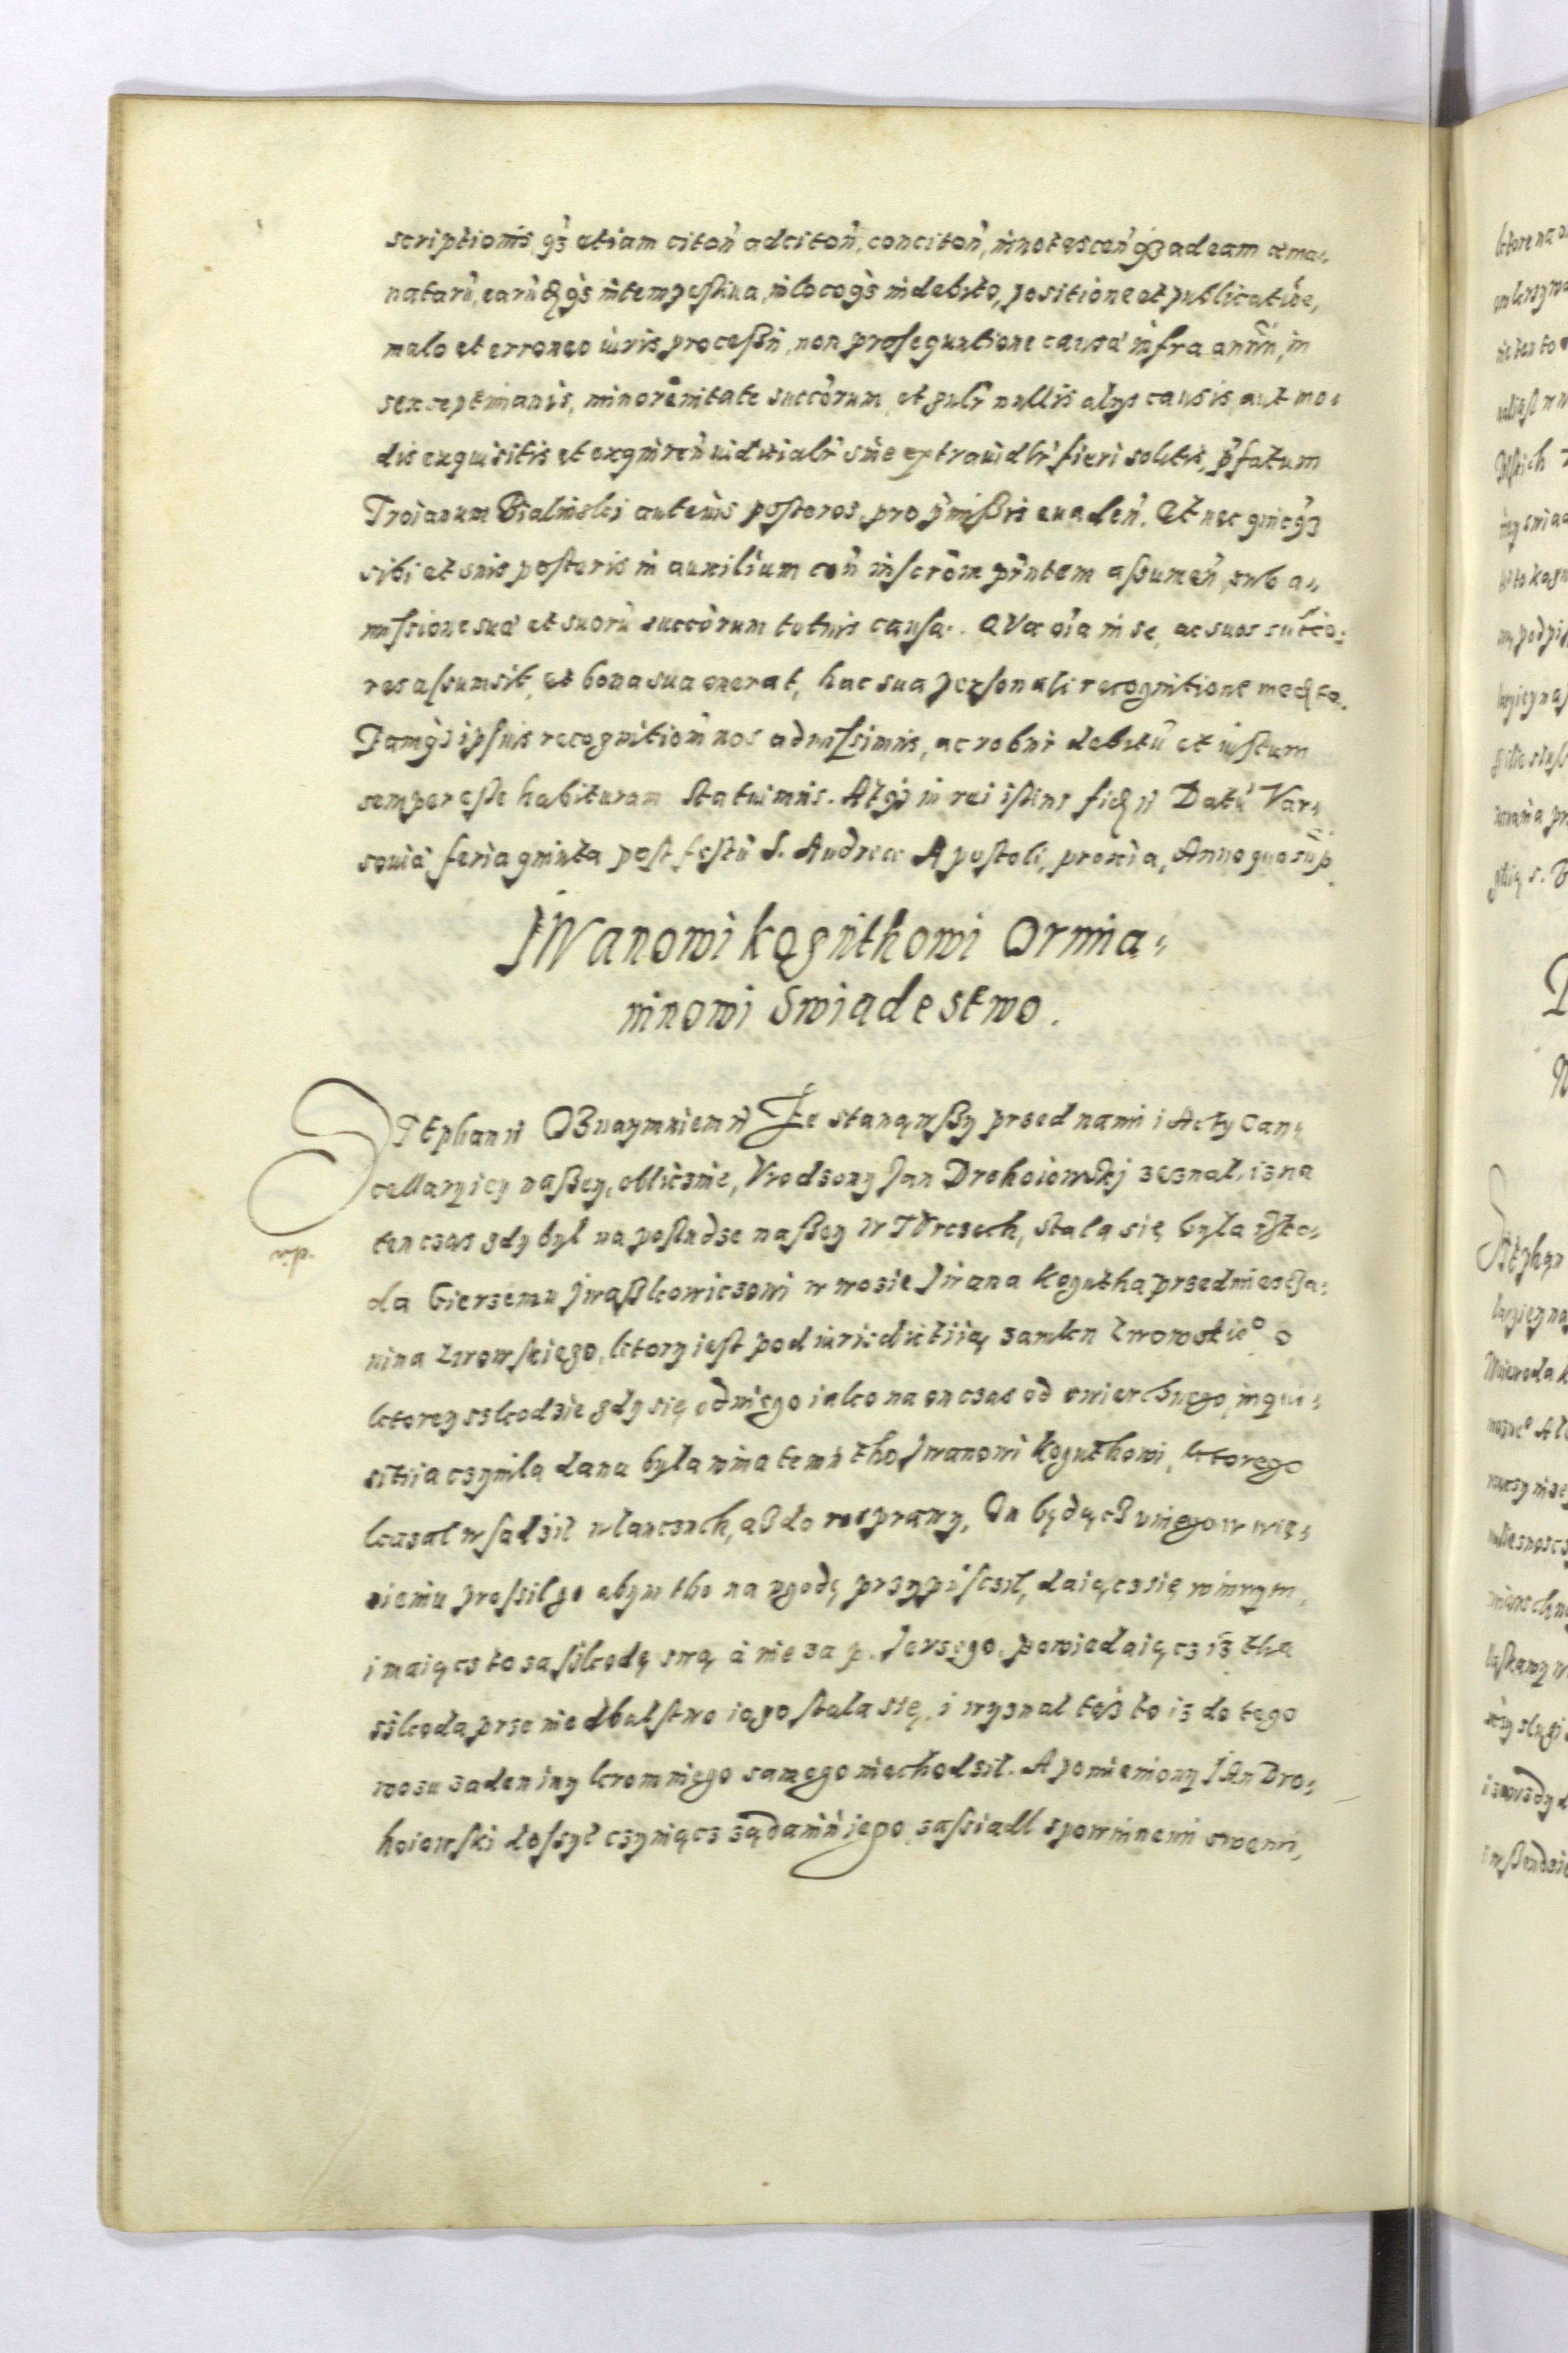 scriptionis, qз etiam citoñ adcitoñ, concitoñ, innotesceñ qз ad eam ema-
natarũ, earũqз intempestiua, in loco qз indebito, positione et publicatiõe,
malo et erroneo iuris processũ, non prosequutione causæ infra annũ, in
sex septimanis, minorẽnitate succõrum et gnlr nullis alijs causis, aut mo-
dis exquisitis et exquireñ iudicialr siue extraiudlr fieri solitis, p̃fatum
Troianum Bialinski autem eius posteros, pro p̃missis euadeñ. Et nec quicqз
sibi et suis posteris in auxilium coñ inscrõm p̃ntem assumeñ, sub a-
missione suæ et suorũ succõrum totius causæ. QVæ oĩa in se, ac suos succõ-
res assumsit, et bona sua onerat, hac sua personali recognitione med̃te.
Tamqз ipsius recognitionẽ nos admissimus, ac robur debitũ et iustum
semper esse habituram statuimus. Atqз in rei istius fidẽ Datũ Var-
souiæ feria quinta post festũ S. Andreæ Apostoli, proxĩa, Anno quo sup̃.
JWanowi kęguthowi Ormia-
ninowi swiadestwo.
STEphan Oznaymuiem Że stanąwßy przed nami i Akty Can-
cellaryiey naßey, oblicznie, Vrodzony Jan Drohoiowskj zeznał, iz na
ten czas gdy był na posłudze naßey w TUrczech, stała się była szko-
da Gierzemu Jwaßkowiczowi w wozie Jwana Kogutha przedmiesczа-
nina Lwowskiego, ktory iest pod iurisdictiią zamku Lwowskie° o
ktorey sskodzie gdy się od niego iako na on czas od zwierzchnego inqui-
sitiia czyniła dana była wina temu tho Jwanowi Koguthowi, ktorego
kazał wsadzić w łancuch, aß do rosprawy, On będącß v niego w wię-
zieniu prossił go abym tho na ugodę przypuscził, daiącz się winnym,
i maiącz to za sskodę swą à nie za p. Jerzego, powiedaiącz iż tha
sskoda prze niedbalstwo iego stała się, i wyznał też to iz do tego
wozu zaden iny krom niego samego niechodził. A pomieniony JAn Dro-
hoiowski dossyć czyniącz żądaniu iego zassiadł z powinnemi swemi,